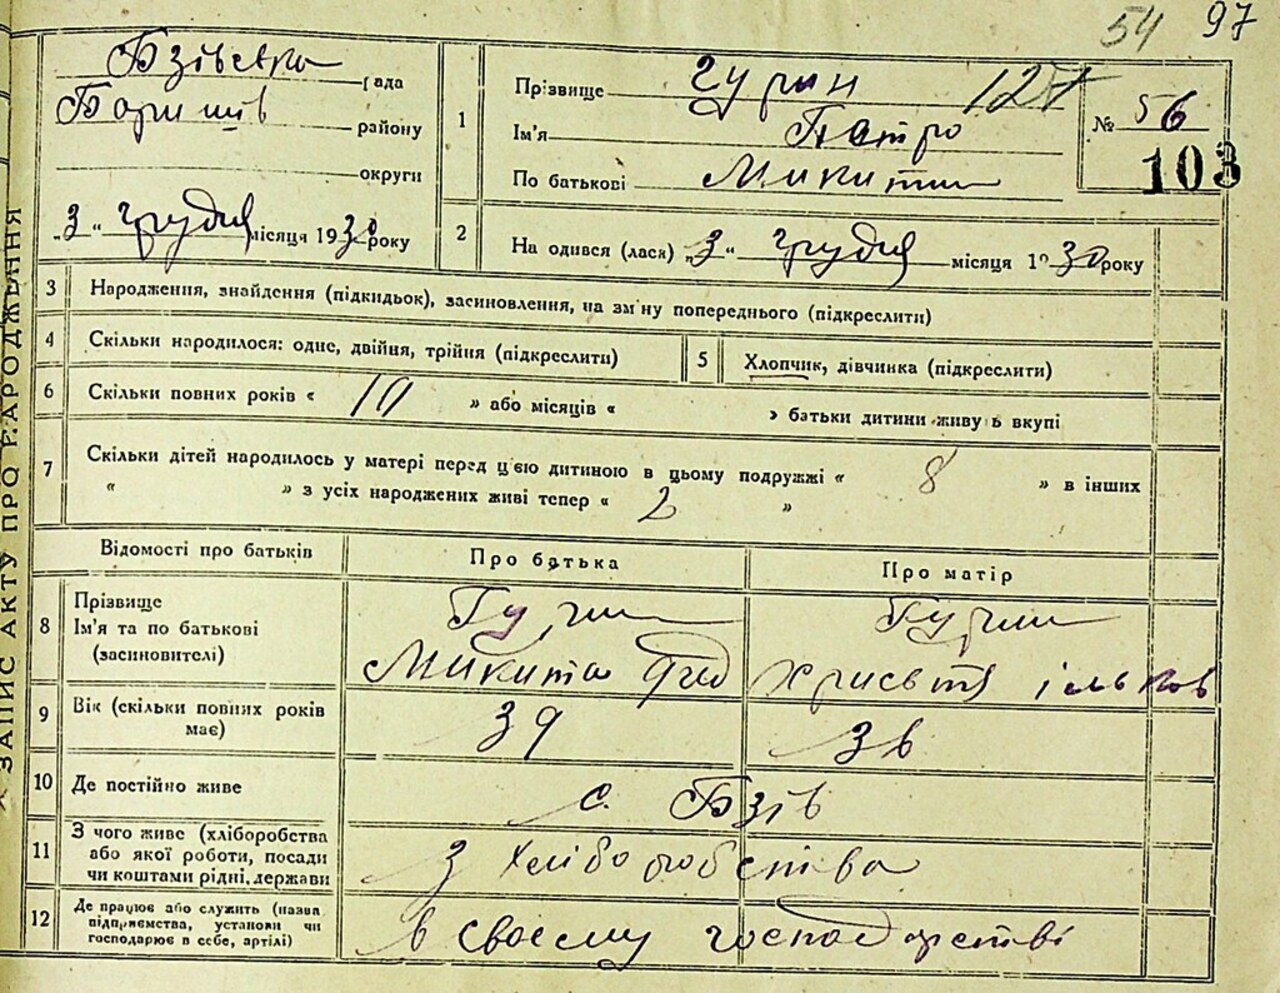 54 97
Бзівська рада
Баришів району
округи
„3“ грудня місяця 1930 року
1 Прізвище Гурин 127
Ім'я Петро
По батькові Микитин
№ 56
103
2 На одився (лася) „3“ грудня місяця 1930 року
3 Народження, знайдення (підкидьок), засиновлення, на зм'ну попереднього (підкреслити)
4 Скільки народилося: одне, двійня, трійня (підкреслити) 5 Хлопчик, дівчинка (підкреслити)
6 Скільки повних років « 10 » або місяців « » батьки дитини живу ь вкупі
7 Скільки дітей народилось у матері перед ц'єю дитиною в цьому подружжі « 8 » в інших
« » з усіх народжених живі тепер « 2 »
Відомості про батьків Про батька Про матір
8 Прізвище Гурин Гурин
Ім'я та по батькові
(засиновителі) Микита Фед Христя ільков
9 Вік (скільки повних років
має) 39 36
10 Де постійно живе с. Бзів
11 З чого живе (хліборобства
або якої роботи, посади
чи коштами рідні, держави з хліборобства
12 Де працює або служить (назва
підприємства, установи чи
господарює в себе, артілі) в своєму господарстві
ЗАПИС АКТУ ПРО НАРОДЖЕННЯ